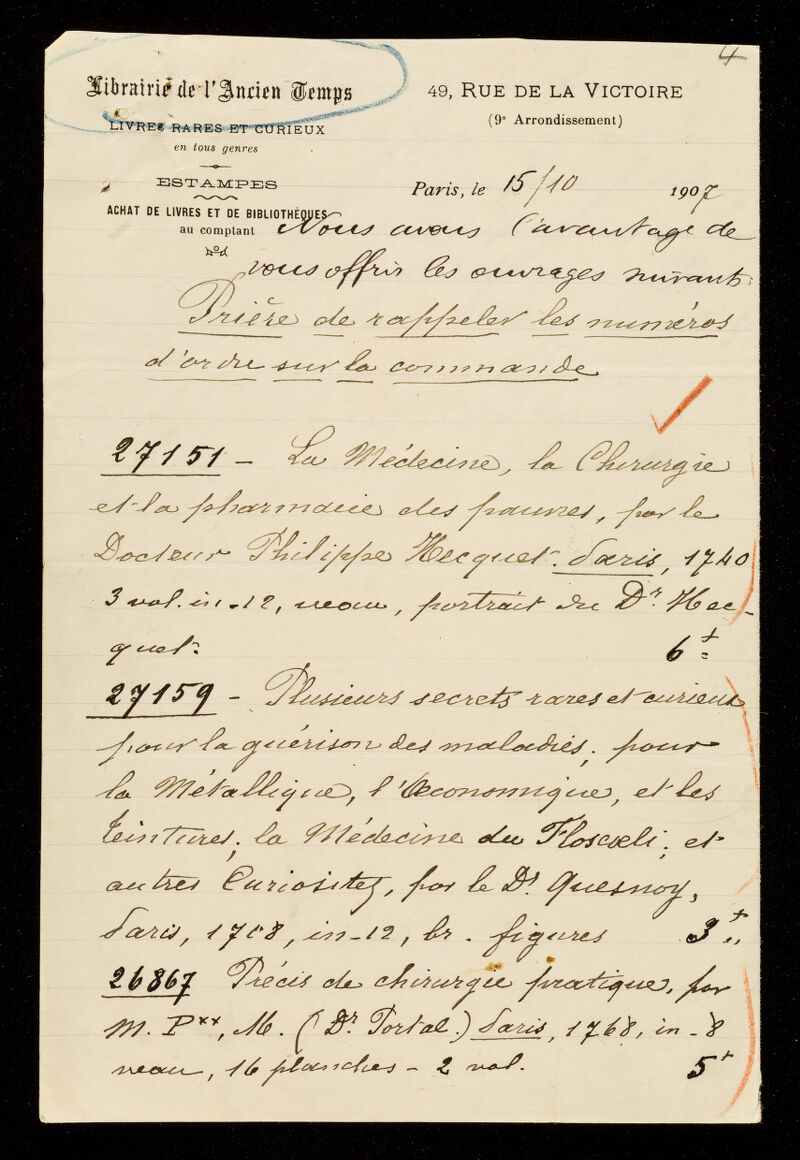 4
Librairie de l'Ancien Temps
LIVRES RARES ET CURIEUX
en tous genres
ESTAMPES
ACHAT DE LIVRES ET DE BIBLIOTHÈQUES
au comptant
49, RUE DE LA VICTOIRE
(9e Arrondissement)
Paris, le 15/10 1907
Nous avons l'avantage de
vous offrir les ouvrages suivants
Prière de rappeler les numéros
d'ordre sur la commande
27151 - La Médecine, la Chirurgie
et la pharmacie des pauvres, par le
Docteur Philippe Hecquet. Paris, 1740
3 vol. in-12, veau, portrait du Dr. Hec-
quet. 6f
27159 - Plusieurs secrets rares et curieux
pour la guérison des maladies, pour
la Métallique, l'Œconomique, et les
teintures; la Médecine du Floscœli; et
autres Curiositez, par le Dr Quesnoy,
Paris, 1708, in-12, br. figures 3f
26867 Précis de chirurgie pratique, par
M. P**, M. (Dr Portal.) Paris, 1768, in-8
veau, 16 planches - 2 vol. 5f